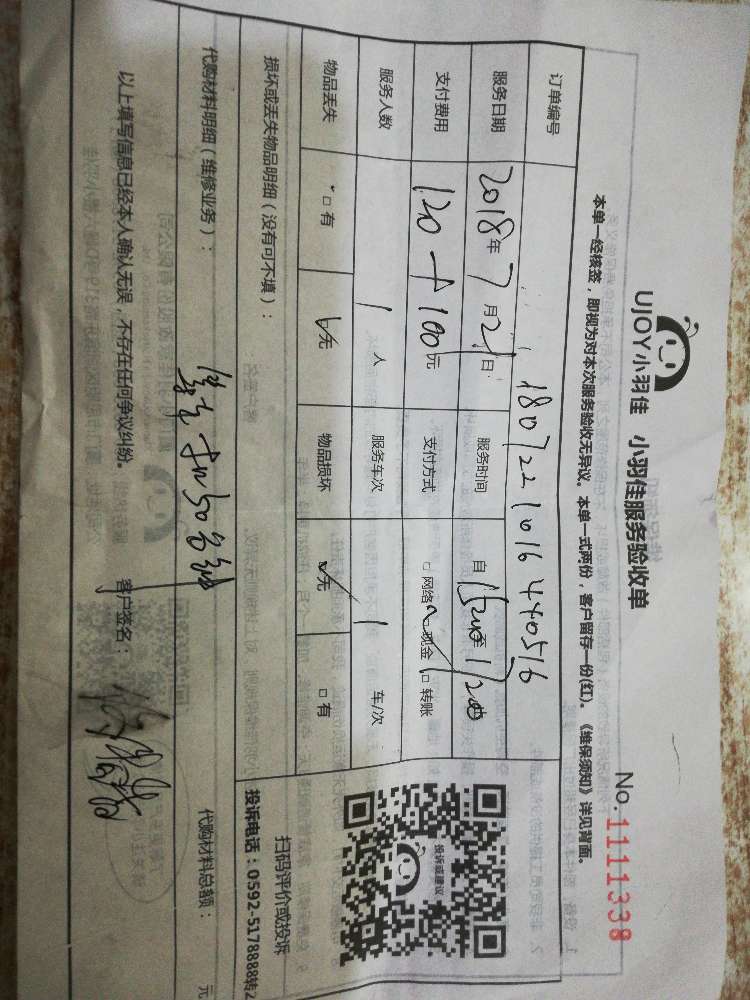 UJOY小羽佳 小羽佳服务验收单
No.1111338
本单一经核签，即视为对本次服务验收无异议。本单一式两份，客户留存一份(红)。《维保须知》详见背面。
订单编号 1807221016440516
服务日期 2018年7月21日 服务时间 自
支付费用 120+100元 支付方式 □网络 □现金 □转账
服务人数 1人 服务车次 1车/次
物品丢失 □有 无 物品损坏 无 □有
损坏或丢失物品明细（没有可不填）：
代购材料明细（维修业务）： 代购材料总额： 元
以上填写信息已经本人确认无误，不存在任何争议纠纷。 客户签名：
投诉或建议
扫码评价或投诉
投诉电话：0592-5178888转2